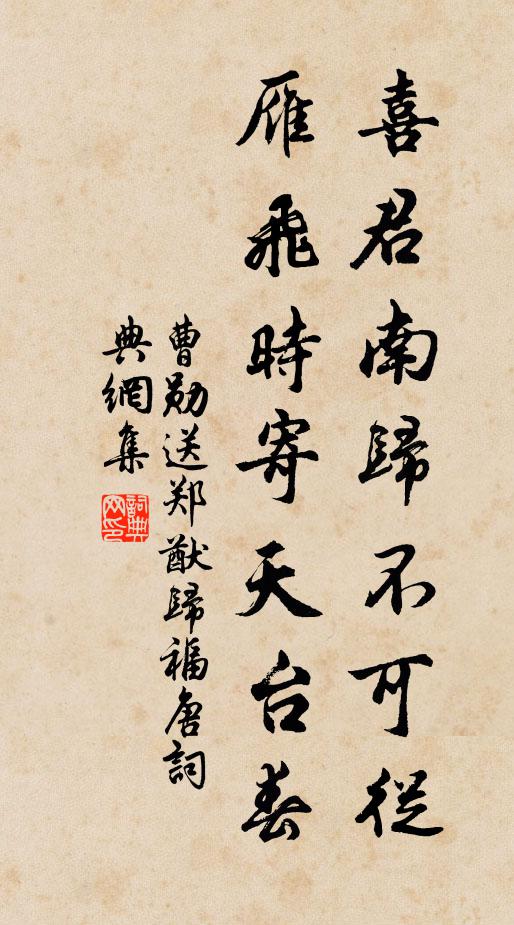 喜君南歸不可從
雁飛時寄天台春
曹勋送郑猷歸福唐詞
典網集
詞典网印